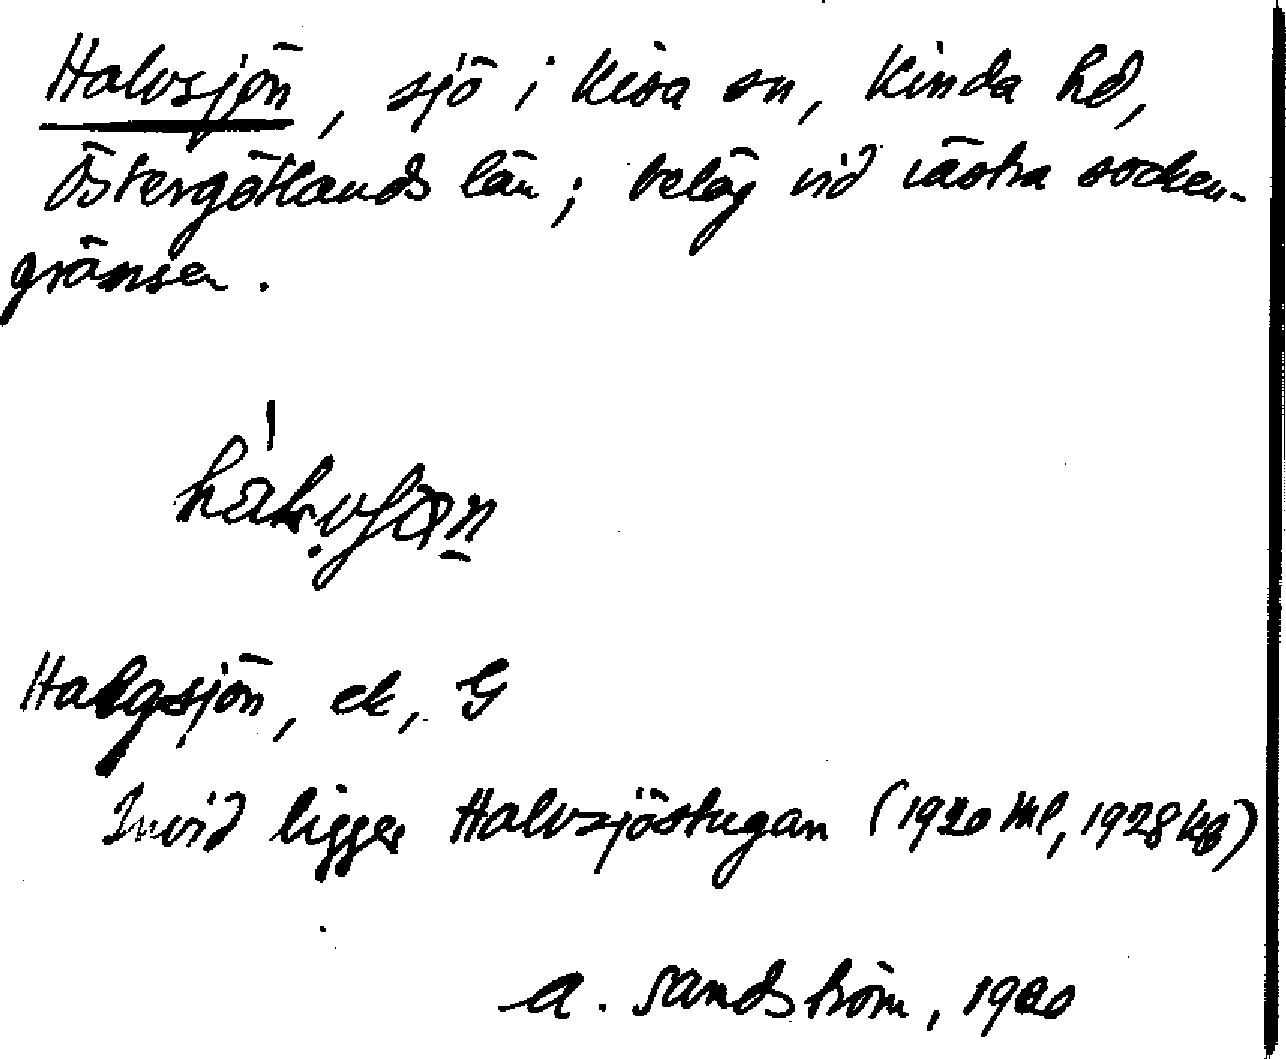 Halvsjön, sjö i Kisa sn, Kinda hd,
Östergötlands län; beläg vid västra socken-
gränsen.
Halgsjön, ek, G
Invid ligger Halvsjöstugan (1920 Ml, 1928 kb)
A. Sandström, 1920